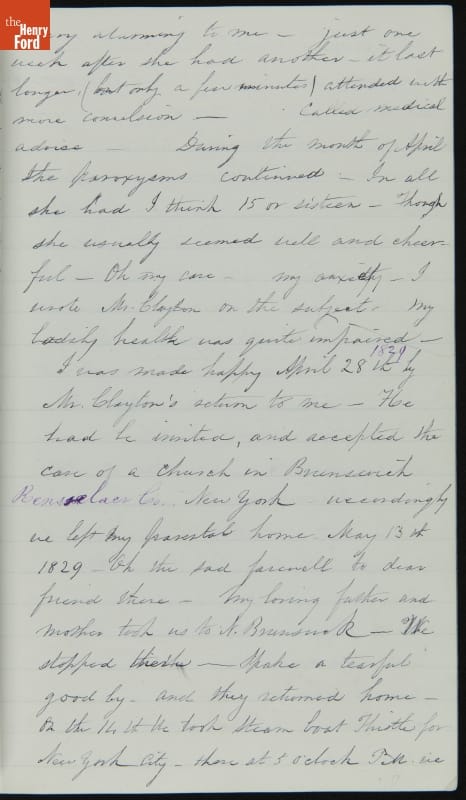 the
Henry
Ford
alarming to me – just one
week after she had another – it last
longer, (but only a few minutes) attended with
more convulsion – Called medical
advise – During the month of April
the paroxysms continued – In all
she had I think 15 or sixteen – Though
she usually seemed well and cheer-
ful – Oh my care – my anxiety – I
wrote Mr. Clayton on the subject. My
bodily health was quite impaired –
1829
I was made happy April 28th by
Mr. Clayton's return to me – He
had be invited, and accepted the
care of a church in Brunswick
Renselaer Co. New York accordingly
we left my parental home May 13th
1829 – Oh the sad farewell to dear
friend there – My loving father and
mother took us to N. Brunswick – We
stopped there – Spake a tearful
good by – and they returned home –
On the 14th We took steam boat Thistle for
New York City – there at 5 o'clock P.M. we